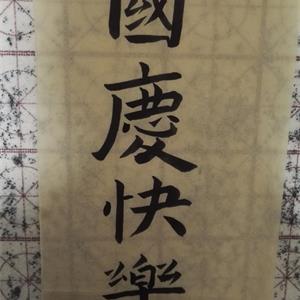 國慶快樂